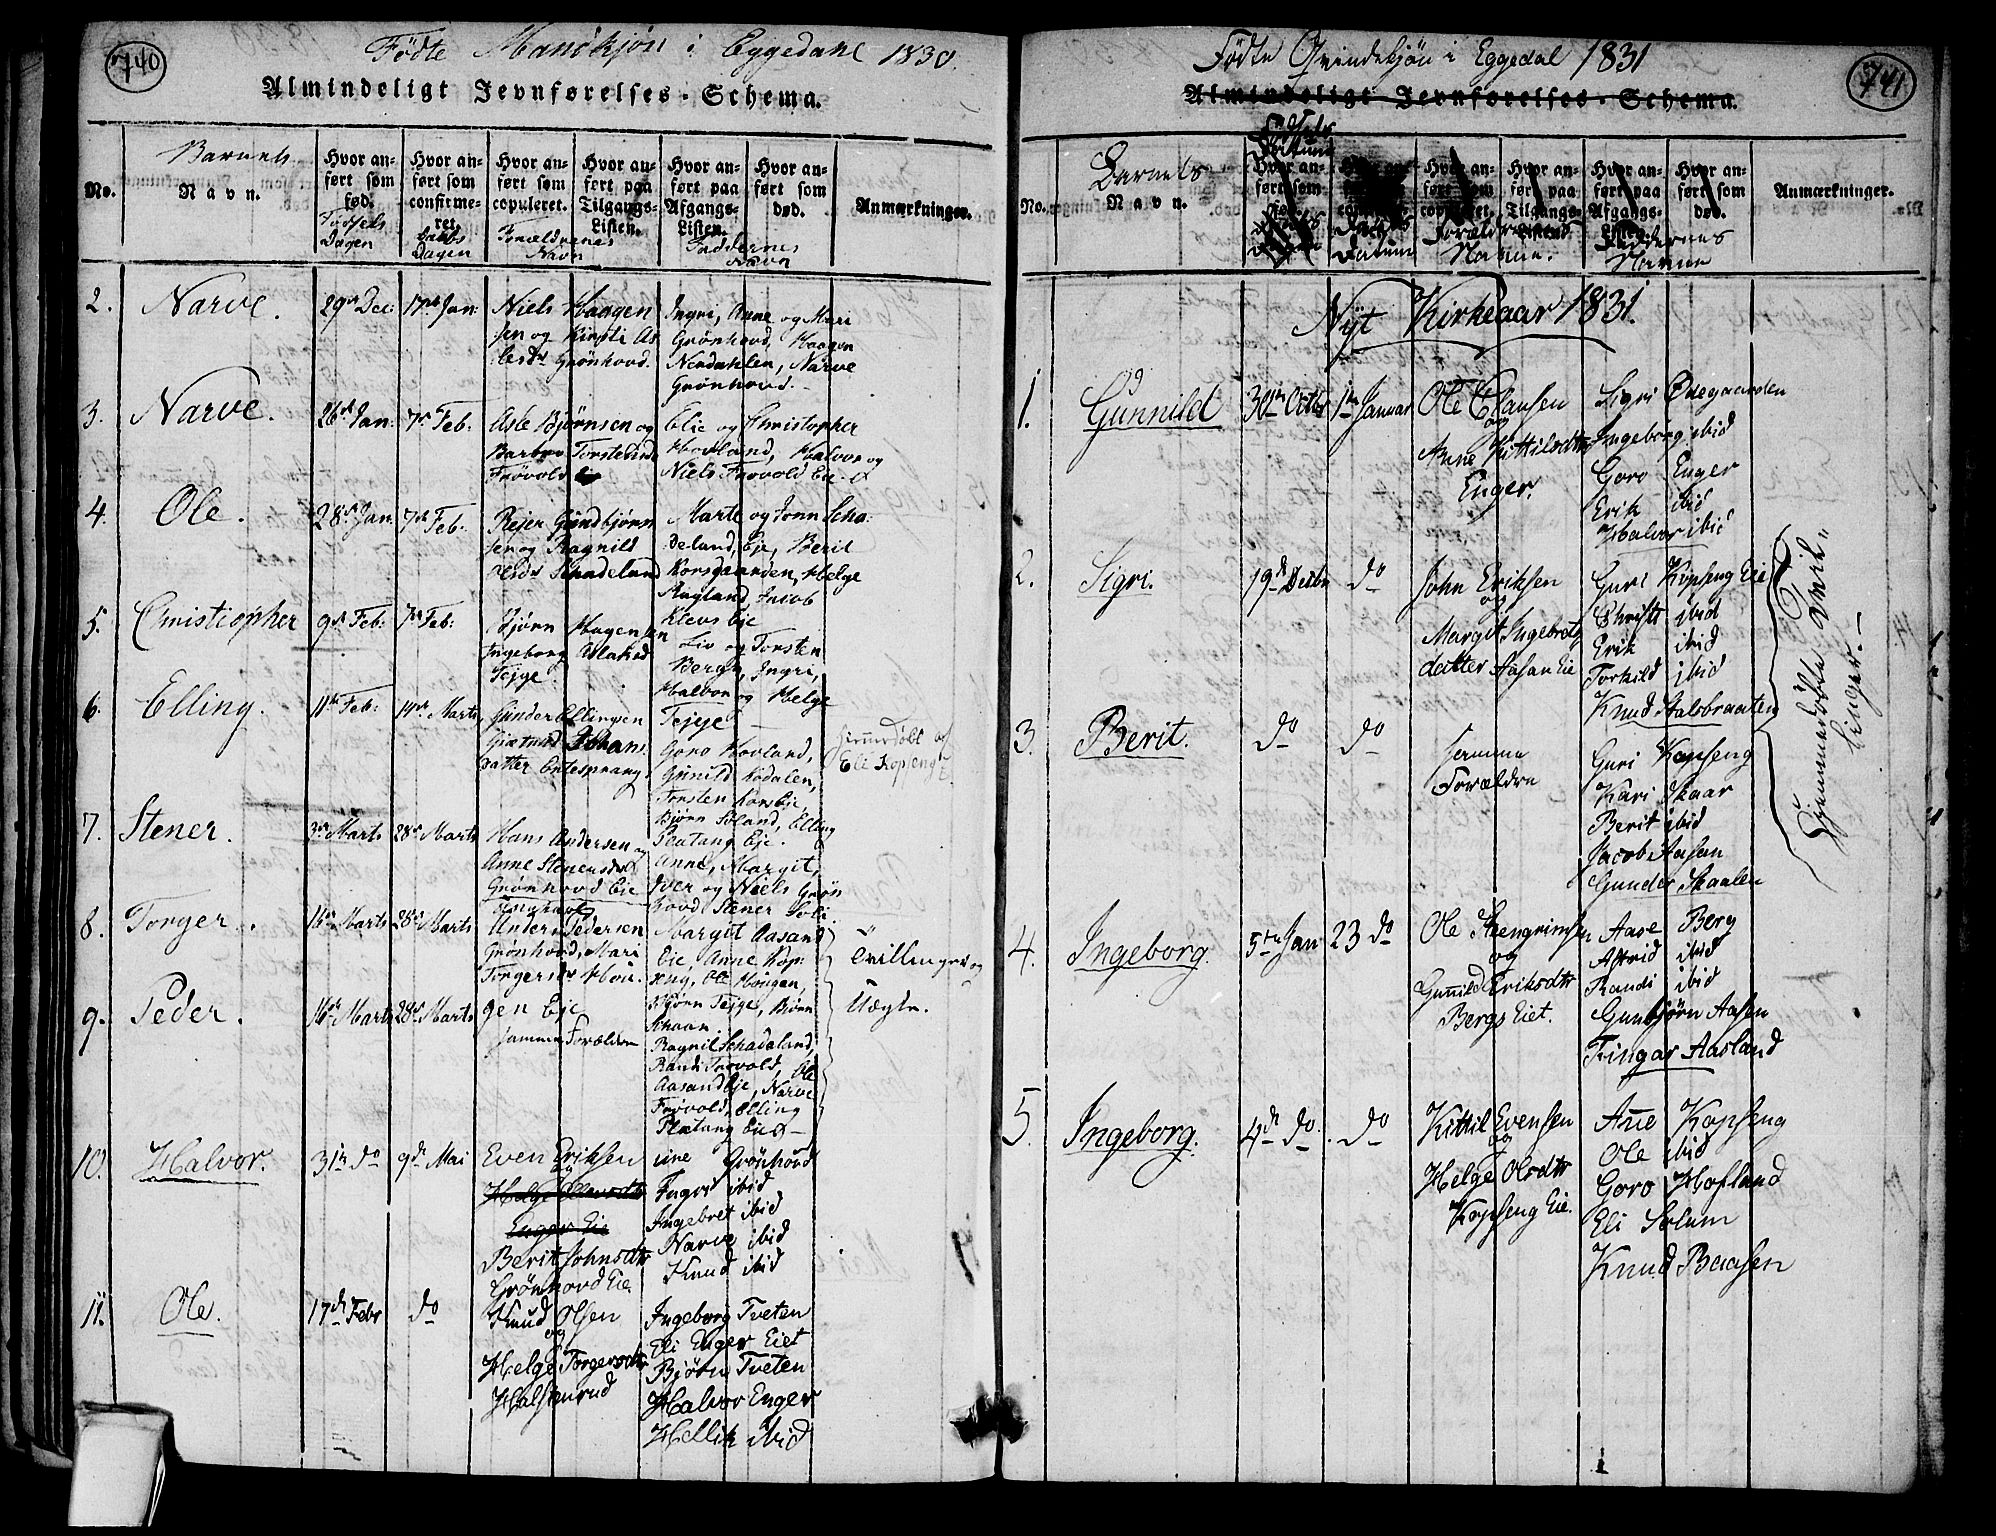 740
Födte Mandkjön i Eggedahl 1830.
Almindeligt Jevnførelses-Schema.
No.
Barnets
Navn.
Hvor an-
ført som
fød.
Fødsels
Dagen
Hvor an-
ført som
confirme-
ret.
Daabs
Dagen
Hvor an-
ført som
copuleret.
Forældrenes
Navn
Hvor an-
ført paa
Tilgangs-
Listen.
Hvor an-
ført paa
Afgangs-
Listen.
Faddernes
Navn
Hvor an-
ført som
død.
Anmærkninger.
2. Narve. 29de Dec: 17de Jan:
Niels Haagen
sen og Kirsti As
lesdr Grönhovd.
Ingri, Anne og Mari
Grönhovd, Haagen
Nerdahlen, Narve
Grönhovd.
3. Narve. 26de Jan: 7de Feb:
Asle Bjørnsen og
Barbro Torstensd
Frövold
Elie og Christopher
Hovland, Halvor og
Niels Frovold Eie
4. Ole. 28de Jan: 7de Feb:
Rejer Gundbjørn
sen og Ragnild
Olsdr Schadeland
Marte og Jonn Scha:
deland, Eje, Berit
Korsgaarden, Helge
Rugland Jacob
Klevs Eie
5. Christopher 9de Feb: 7de Feb:
Bjørn Hagensen
Ingeborg Aslaksd
Tejge
Liv og Torsten
Berge, Ingri,
Halvor og Helge
Tejge
6. Elling. 11te Feb: 14de Marts
Gunder Ellingsen
Giertrud Johans
datter Entesprang
Goro Hovland,
Gunild Kodalen,
Torsten Kors Eje,
Bjørn Söland, Elling
Plætang Eje.
Hiemmedöbt af
Eli Kopseng
7. Stener. 3de Marts 28de Marts
Hans Andersen og
Anne Stenersdr
Grönhovd Eie
Anne, Margit,
Iver og Niels Grön
hovd Stener Soli
8. Torger. 16de Marts 28de Marts
Anders Pedersen
Grönhovd, Mari
Torgersdr Hou
Margit Aasand
Eie Anne Kop:
seng, Ole Hougen,
Bjørn Tejge, Bjørn
Schaan
Tvillinger og
Uægte.
9. Peder. 16de Marts 28de Marts
gen Eje
samme Forældre
Ragnil Schadeland,
Randi Frovold, Ole
Aasand Eje, Narve
Frøvold, Elling
Plætang Eie
10. Halvor. 31te do 9de Mai
Even Eriksen
og
Helge Ellevsdtr
Enger Eie
Berit Johnsdtr
Grönhovd Eie.
ine Grönhovd
Ingri ibid
Ingebret ibid
Narve ibid
Knud ibid
11. Ole. 17de Febr do
Knud Olsen
og
Helge Torgersdtr
Halstenrud
Ingeborg Tveten
Eli Enger Eiet
Bjørn Tveten
Halvor Enger
Hellik ibid
741
Födte Qvindekjön i Eggedal 1831
Almindeligt Jevnførelses-Schema.
No.
Barnets
Navn.
Fødsels
Datum
Hvor an-
ført som
Datum
Hvor an-
ført som
copuleret.
Forældrenes
Navne.
Hvor an-
ført paa
Tilgangs-
Listen.
Hvor an-
ført paa
Afgangs-
Listen.
Faddernes
Navne
Hvor an-
ført som
død.
Anmærkninger.
Nÿt Kirkeaar 1831.
1. Gunnild 30te Octbr 1te Januar
Ole Clausen
og
Anne Kittilsdtr
Enger.
Sigri Ødegaarden
Ingeborg ibid
Goro Enger
Erik ibid
Halvor ibid
2. Sigri. 19de Decbr do
John Eriksen
og
Margit Ingebretz
datter Aasan Eie
Guri Kopseng Eie
Christi ibid
Erik ibid
Torkild ibid
Knud Aalsbraaten
3. Berit. do do
samme
Forældre
Guri Kopseng
Kari Skaar
Berit ibid
Jacob Aasan
Gunder Skaalen
Hjemmedöbte Tvil-
linger.
4. Ingeborg. 5te Jan 23 do
Ole Steengrimsen
og
Gunild Eriksdtr
Bergs Eiet.
Aase Berg
Astrid ibid
Randi ibid
Gunbjörn Aasen
Fingar Aasland
5. Ingeborg. 4de do. do
Kittil Evensen
og
Helge Olsdtr
Kopseng Eie.
Ane Kopseng
Ole ibid
Goro Hofland
Eli Solum
Knud Baasen